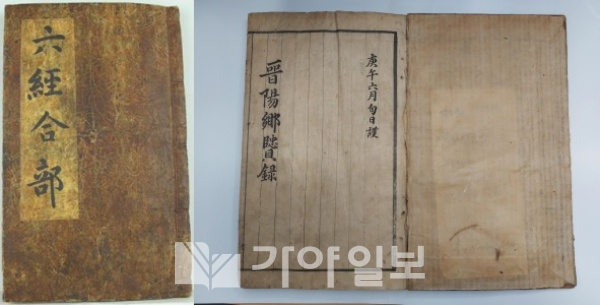 六經合部
庚午六月旬日
晉陽鄕賢錄
가야일보